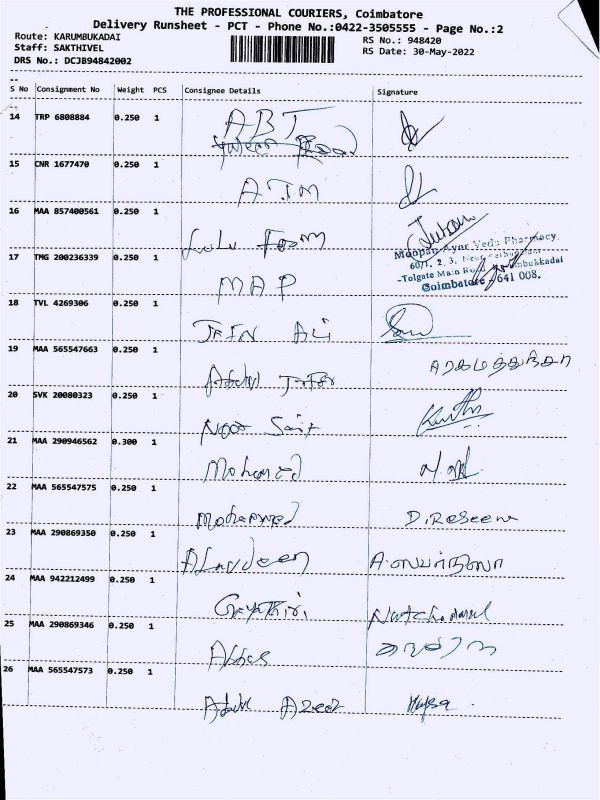 THE PROFESSIONAL COURIERS, Coimbatore
Delivery Runsheet - PCT - Phone No.:0422-3505555 - Page No.:2
Route: KARUMBUKADAI
RS No.: 948420
Staff: SAKTHIVEL
RS Date: 30-May-2022
DRS No.: DCJB94842002
S No Consignment No Weight PCS Consignee Details Signature
14 TRP 6808884 0.250 1 ABT
15 CNR 1677470 0.250 1 ATM
16 MAA 857400561 0.250 1 Lulu Form
Moopan Ayur Veda Pharmacy,
60/1, 2, 3,
-Tolgate Main Road
Coimbatore - 641 008.
17 TMG 200236339 0.250 1 MAP
18 TVL 4269306 0.250 1 JAIN ALI
19 MAA 565547663 0.250 1 Abdul
20 SVK 20080323 0.250 1
21 MAA 290946562 0.300 1 Mohamed
22 MAA 565547575 0.250 1 Mohammed D.Raseena
23 MAA 290869350 0.250 1 ALavdeen
24 MAA 942212499 0.250 1 Gayathiri
25 MAA 290869346 0.250 1 Abbas
26 MAA 565547573 0.250 1 Abdul Azeez